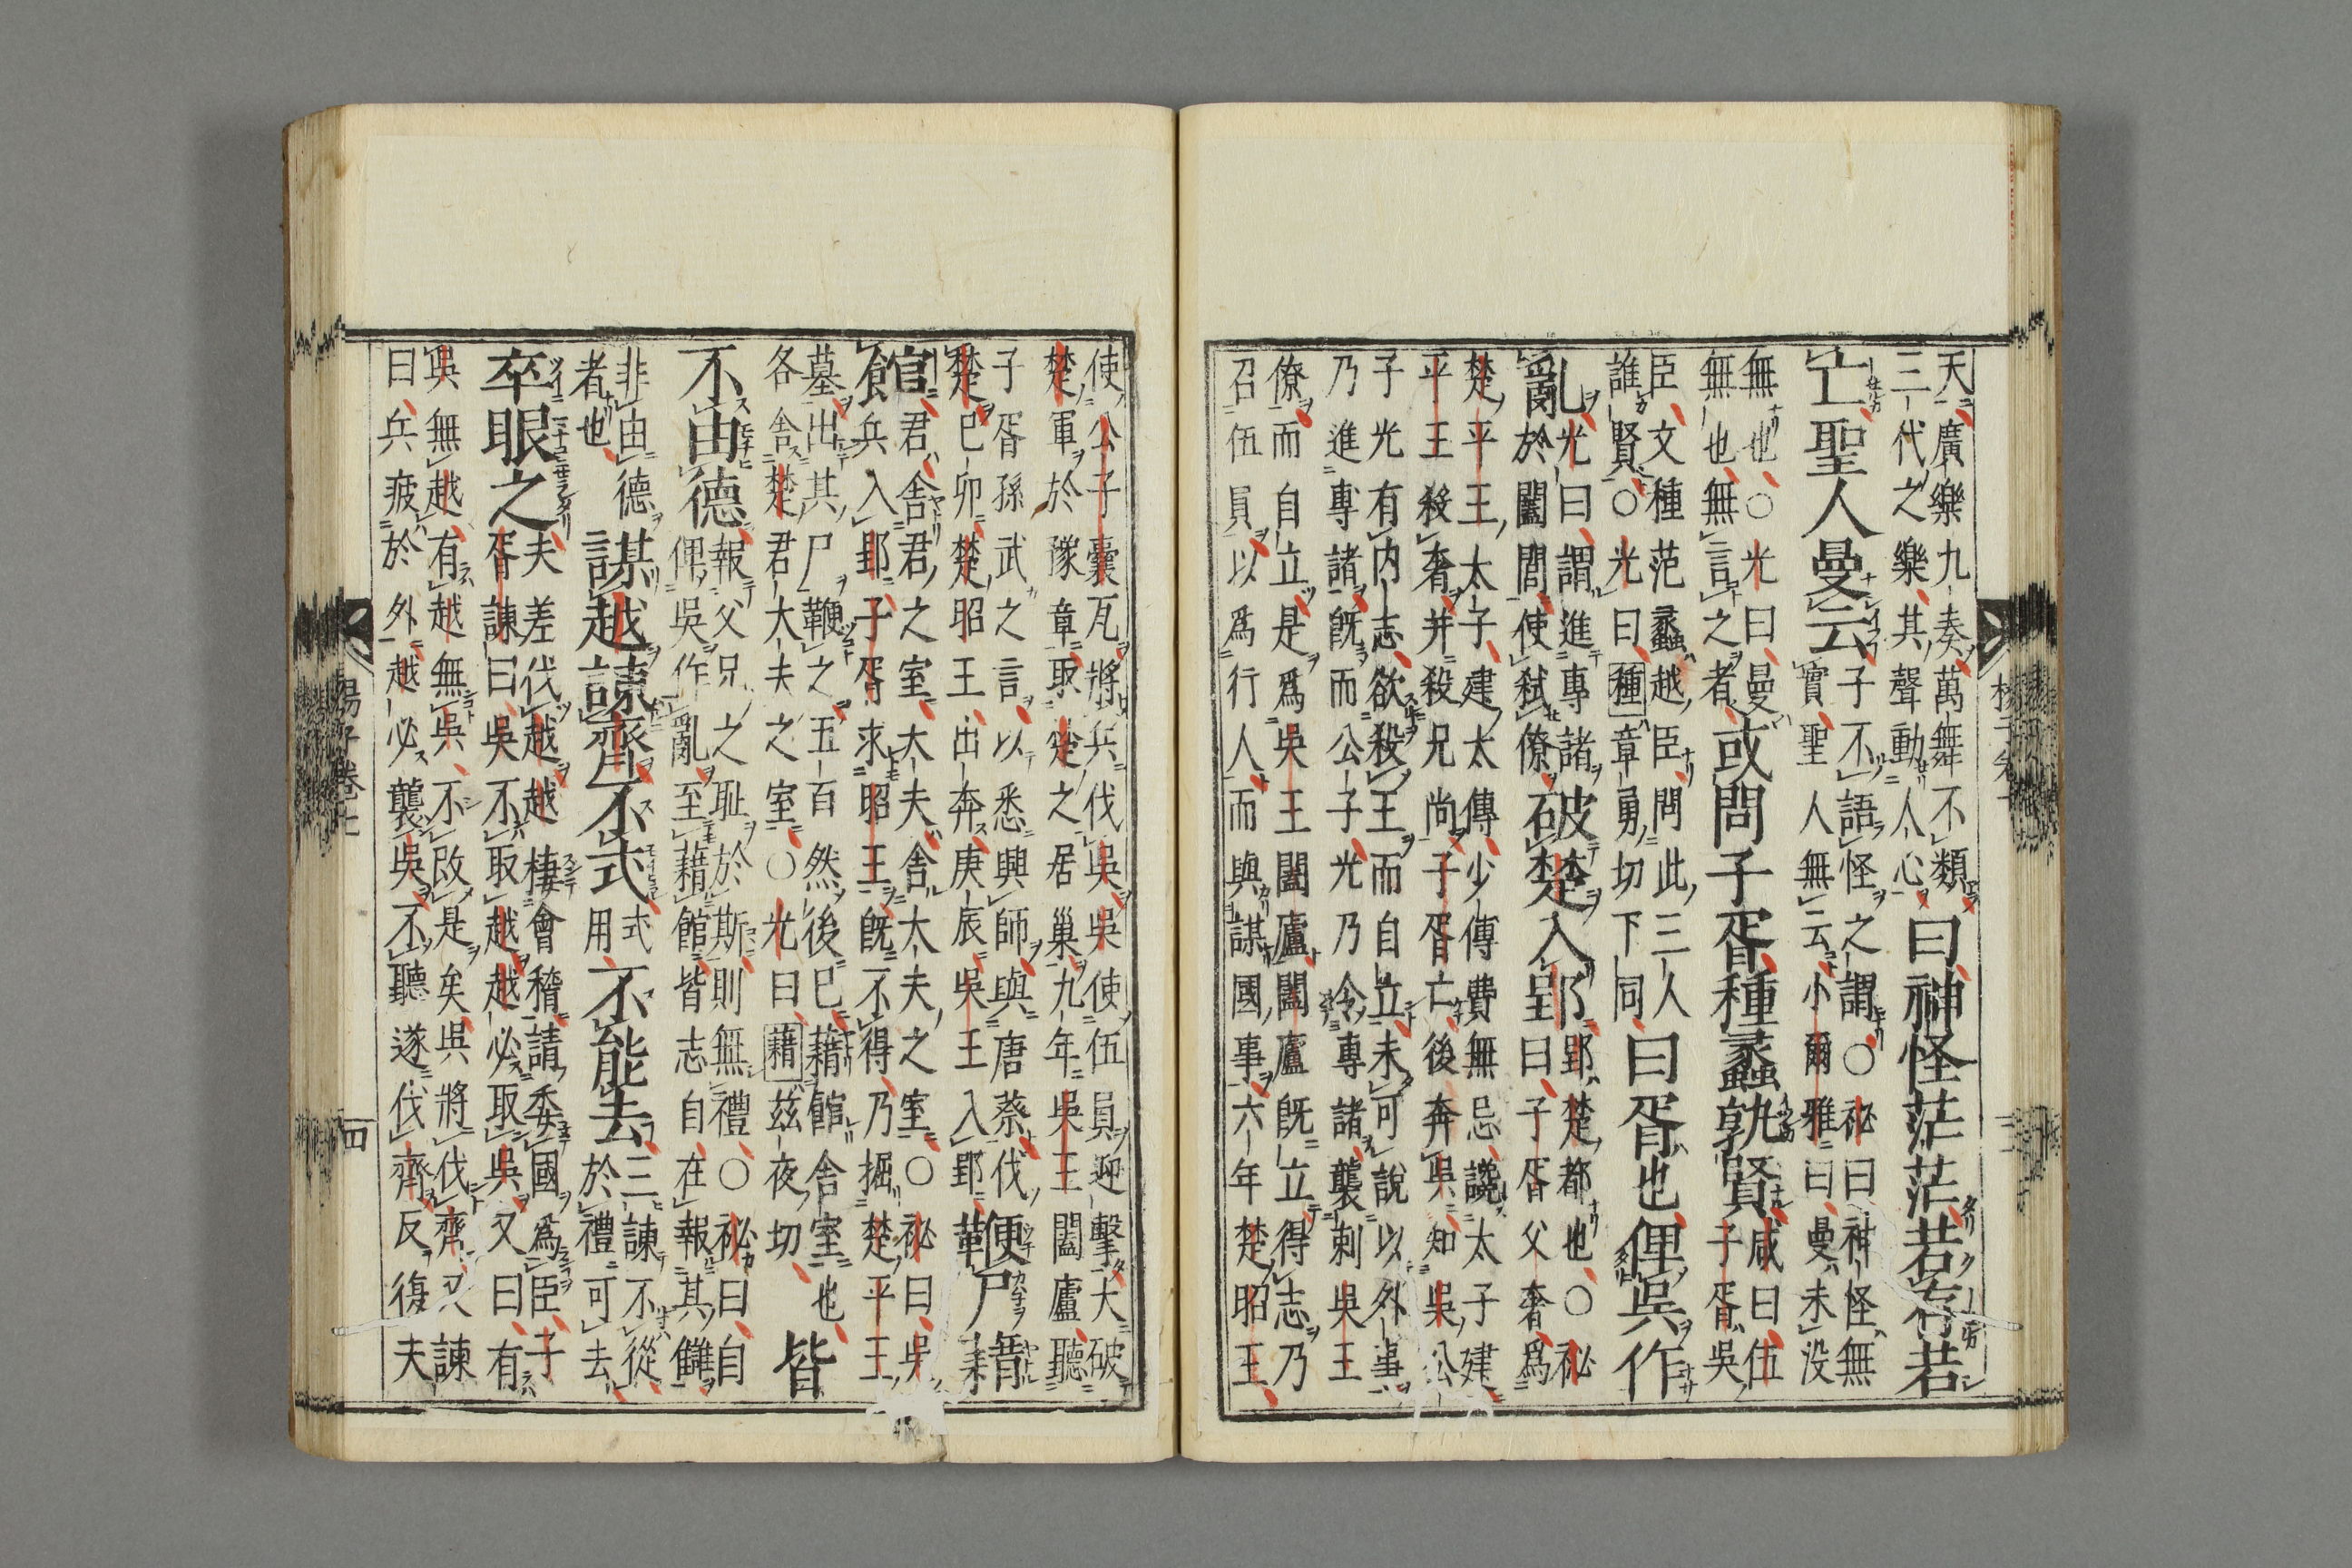 天廣樂九奏萬舞不類
三代之樂其聲動人心
曰神怪茫茫若存若
亡聖人曼云
子不語怪之謂○祕曰神怪無
實聖人無云小爾雅曰曼末没
無也○光曰曼
無也無言之者
或問子胥種蠡孰賢
咸曰伍
子胥吳
臣文種范蠡越臣問此三人
誰賢○光曰種章勇切下同
曰胥也俾吳作
亂
光曰謂進專諸
於闔閭使弑僚
破楚入郢
郢楚都也○祕
曰子胥父奢爲
楚平王太子建太傅少傅費無忌讒太子建
平王殺奢并殺兄尚子胥亡後奔吳知吳公
子光有内志欲殺王而自立未可說以外事
乃進專諸既而公子光乃令專諸襲刺吳王
僚而自立是爲吳王闔廬闔廬既立得志乃
召伍員以爲行人而與謀國事六年楚昭王
使公子囊瓦將兵伐吳吳使伍員迎擊大破
楚軍於豫章取楚之居巢九年吳王闔廬聽
子胥孫武之言以悉興師與唐蔡伐
楚已卯楚昭王出奔庚辰吳王入郢
鞭尸藉
館
君舍君之室大夫舍大夫之室○祕曰吳
兵入郢子胥求昭王既不得乃掘楚平王
墓出其尸鞭之五百然後已藉館舍室也
各舍楚君大夫之室○光曰藉茲夜切
皆
不由德
報父兄之耻於斯則無禮○祕曰自
俾吳作亂至藉館皆志自在報其讎
非由德
者也
謀越諫齊不式
式
用
不能去
三諫不從
於禮可去
卒眼之
夫差伐越越棲會稽請委國爲臣子
胥諫曰吳不取越越必取吳又曰有
吳無越有越無吳不改是矣吳將伐齊又諫
曰兵疲於外越必襲吳不聽遂伐齊反復夫
楊子卷七
四